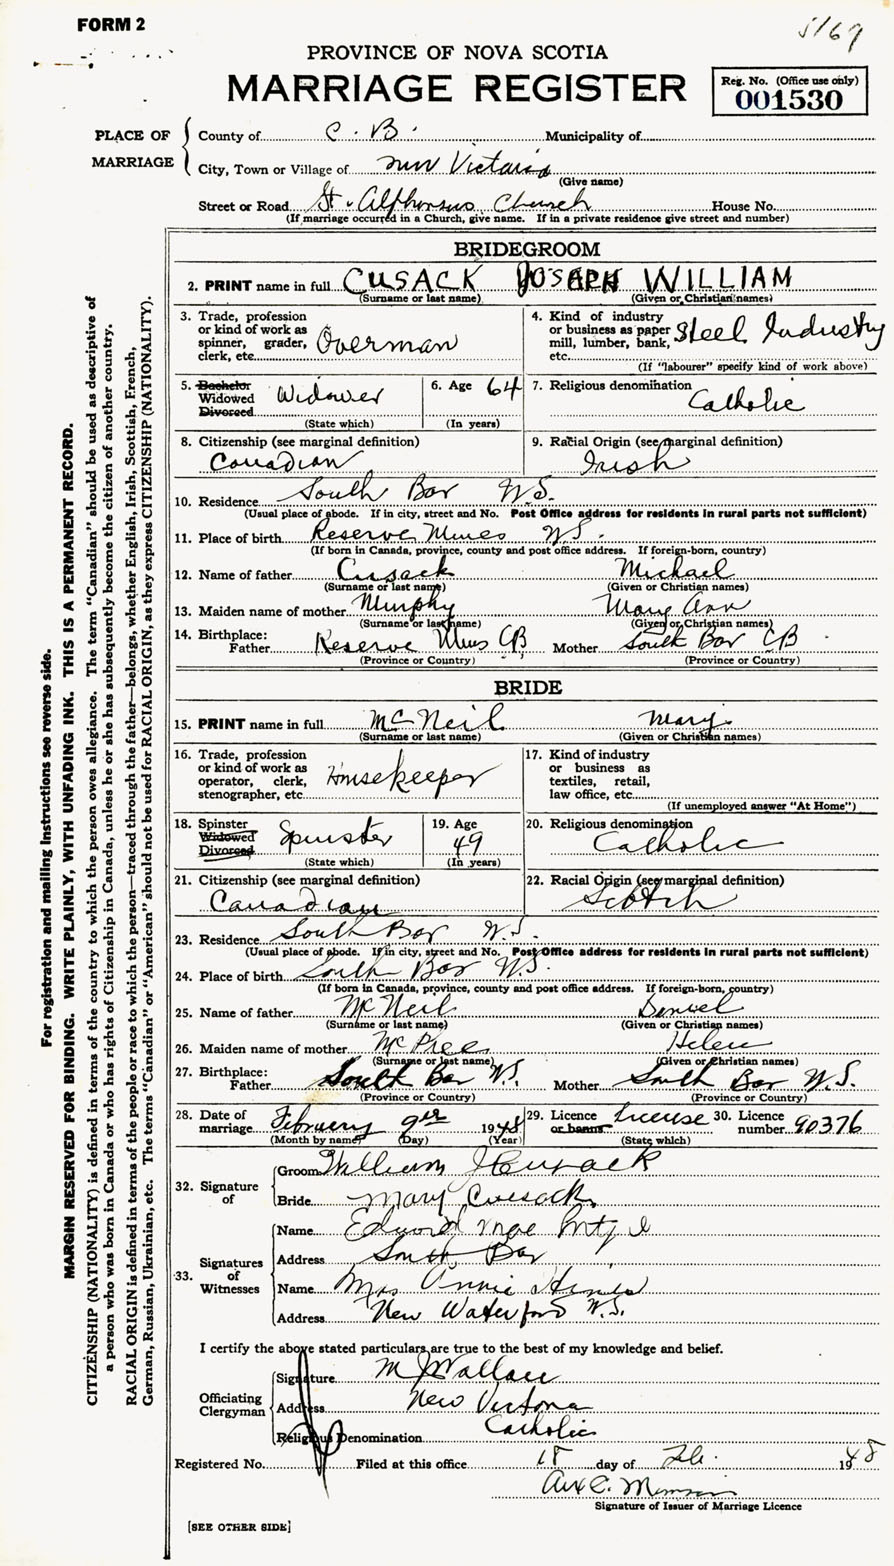 FORM 2
5/69
PROVINCE OF NOVA SCOTIA
MARRIAGE REGISTER
Reg. No. (Office use only)
001530
PLACE OF MARRIAGE
County of C. B. Municipality of
City, Town or Village of New Victoria
(Give name)
Street or Road St. Alphonsus Church House No.
(If marriage occurred in a Church, give name. If in a private residence give street and number)
BRIDEGROOM
2. PRINT name in full CUSACK JOSEPH WILLIAM
(Surname or last name) (Given or Christian names)
3. Trade, profession or kind of work as spinner, grader, clerk, etc. Overman
4. Kind of industry or business as paper mill, lumber, bank, etc. Steel Industry
(If "labourer" specify kind of work above)
5. Bachelor Widowed Divorced Widower
(State which)
6. Age 64
(In years)
7. Religious denomination Catholic
8. Citizenship (see marginal definition)
Canadian
9. Racial Origin (see marginal definition)
Irish
10. Residence South Bar N.S.
(Usual place of abode. If in city, street and No. Post Office address for residents in rural parts not sufficient)
11. Place of birth Reserve Mines N.S.
(If born in Canada, province, county and post office address. If foreign-born, country)
12. Name of father Cusack Michael
(Surname or last name) (Given or Christian names)
13. Maiden name of mother Murphy Mary Ann
(Surname or last name) (Given or Christian names)
14. Birthplace:
Father Reserve Mines CB Mother South Bar CB
(Province or Country) (Province or Country)
BRIDE
15. PRINT name in full McNeil Mary
(Surname or last name) (Given or Christian names)
16. Trade, profession or kind of work as operator, clerk, stenographer, etc. Housekeeper
17. Kind of industry or business as textiles, retail, law office, etc.
(If unemployed answer "At Home")
18. Spinster Widowed Divorced Spinster
(State which)
19. Age
49
(In years)
20. Religious denomination
Catholic
21. Citizenship (see marginal definition)
Canadian
22. Racial Origin (see marginal definition)
Scotch
23. Residence South Bar N.S.
(Usual place of abode. If in city, street and No. Post Office address for residents in rural parts not sufficient)
24. Place of birth South Bar N.S.
(If born in Canada, province, county and post office address. If foreign-born, country)
25. Name of father McNeil Daniel
(Surname or last name) (Given or Christian names)
26. Maiden name of mother McPhee Helen
(Surname or last name) (Given or Christian names)
27. Birthplace:
Father South Bar N.S. Mother South Bar N.S.
(Province or Country) (Province or Country)
28. Date of marriage February 9th 1948
(Month by name) (Day) (Year)
29. Licence or banns License
(State which)
30. Licence number 90376
32. Signature of
Groom William J Cusack
Bride Mary Cusack
33. Signatures of Witnesses
Name Edward
Address South Bar
Name Mrs Annie
Address New Waterford N.S.
I certify the above stated particulars are true to the best of my knowledge and belief.
Officiating Clergyman
Signature M J Wallace
Address New Victoria
Religious Denomination Catholic
Registered No. Filed at this office 18 day of Feb. 1948
Signature of Issuer of Marriage Licence
[SEE OTHER SIDE]
For registration and mailing instructions see reverse side.
MARGIN RESERVED FOR BINDING. WRITE PLAINLY, WITH UNFADING INK. THIS IS A PERMANENT RECORD.
CITIZENSHIP (NATIONALITY) is defined in terms of the country to which the person owes allegiance. The term "Canadian" should be used as descriptive of
a person who was born in Canada or who has rights of Citizenship in Canada, unless he or she has subsequently become the citizen of another country.
RACIAL ORIGIN is defined in terms of the people or race to which the person—traced through the father—belongs, whether English, Irish, Scottish, French,
German, Russian, Ukrainian, etc. The terms "Canadian" or "American" should not be used for RACIAL ORIGIN, as they express CITIZENSHIP (NATIONALITY).